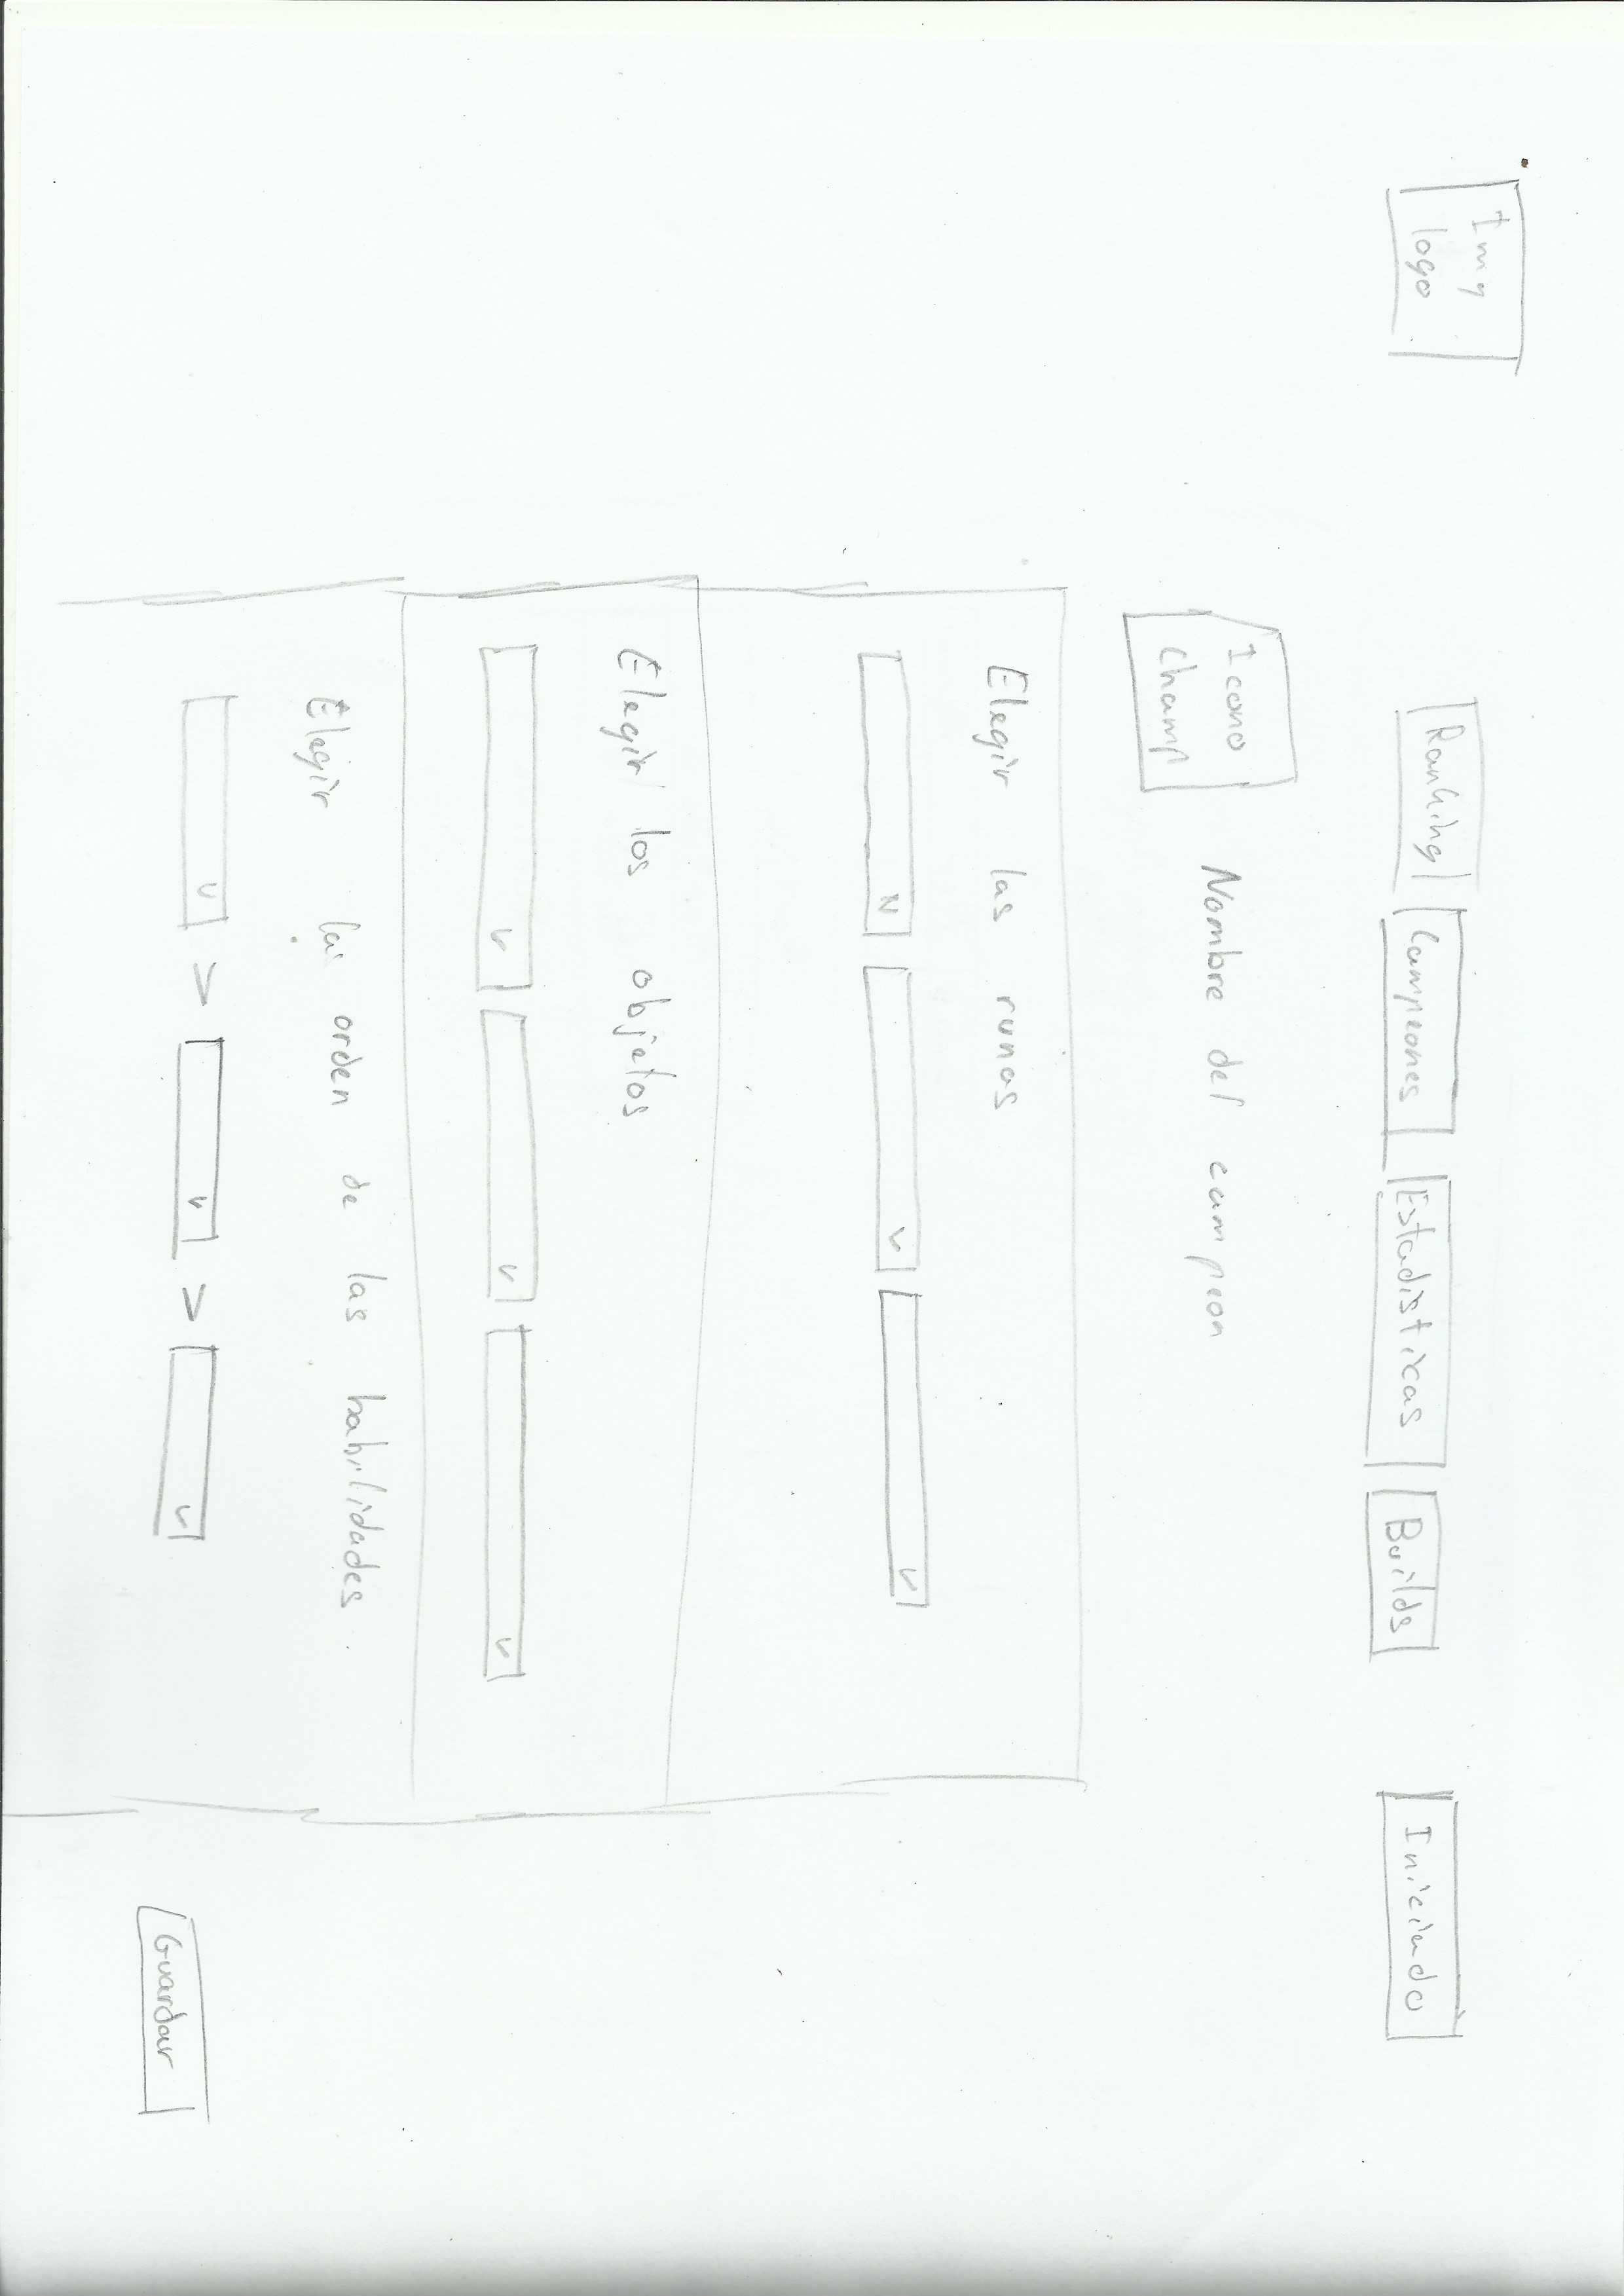 Img
logo
Ranking
Campeones
Estadisticas
Builds
Iniciado
Icono
champ
Nombre del campeon
Elegir las runas
Elegir los objetos
Elegir las orden de las habilidades.
> >
Guardar